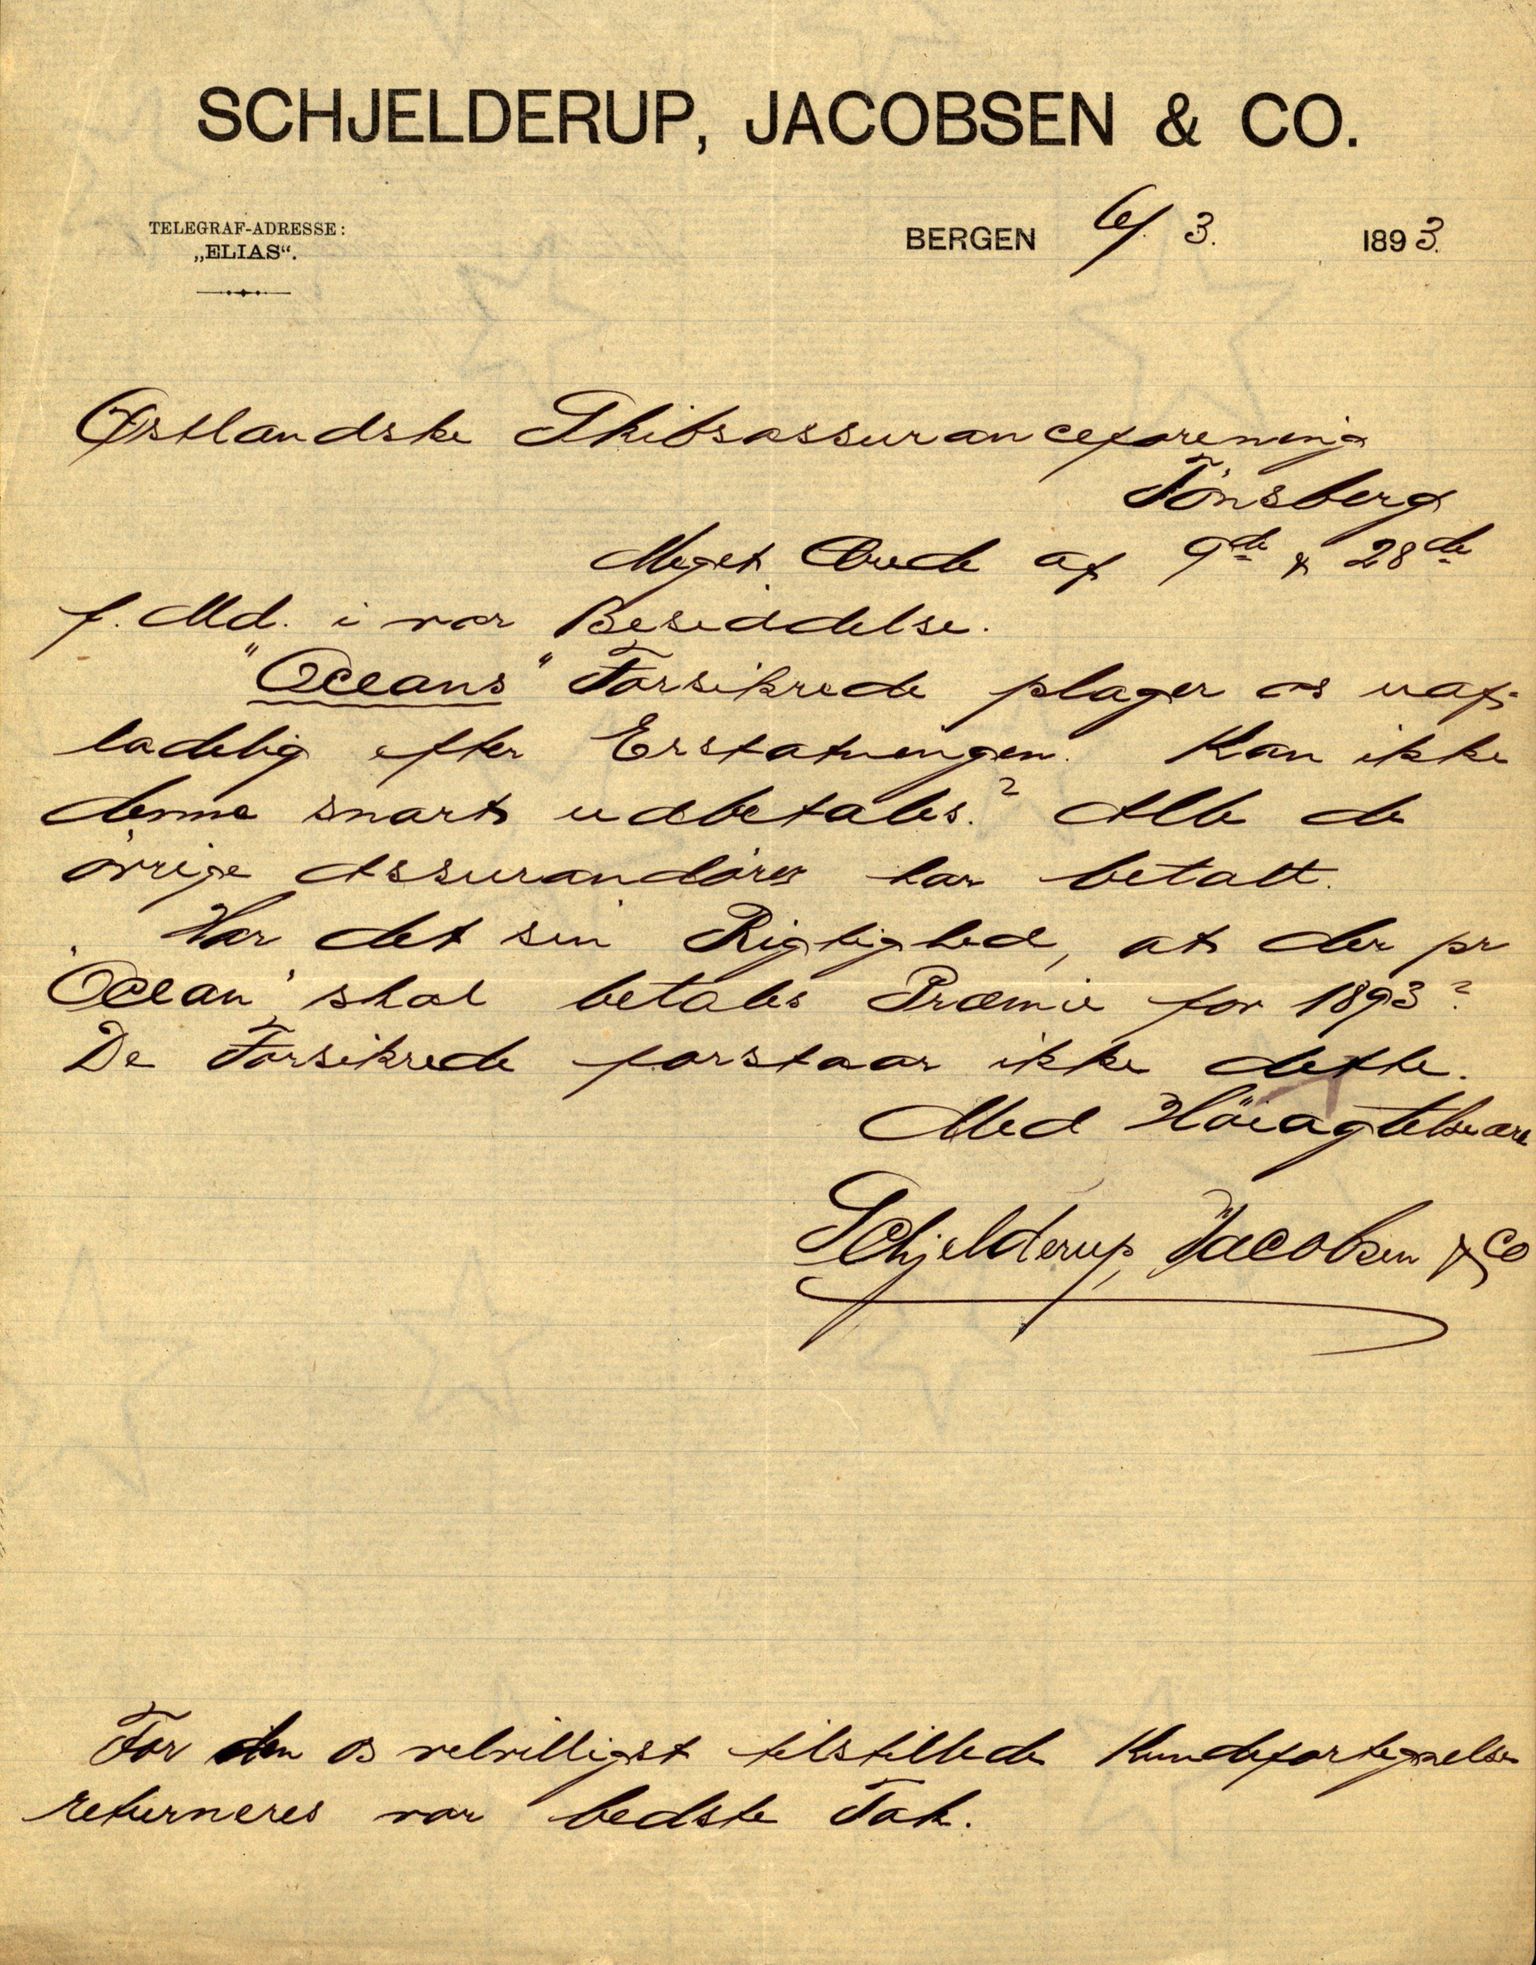 SCHJELDERUP, JACOBSEN & CO.
TELEGRAF-ADRESSE:
„ELIAS“.
BERGEN 6/3. 1893.
Østlandske Skibsassuranceforening
Tönsberg
Meget Ærede af 9de & 28de
f. Md. i vor Besiddelse.
"Oceans" Forsikrede plager os uaf-
ladelig efter Erstatningen. Kan ikke
denne snart udbetales? Alle de
övrige Assurandörer har betalt.
Har det sin Rigtighed, at der pr
'Ocean' skal betales Præmie for 1893?
De Forsikrede forstaar ikke dette.
Med Höiagtelse
Schjelderup, Jacobsen & Co
For den os velvilligst tilstillede Kundefortegnelse
returneres vor bedste Tak.